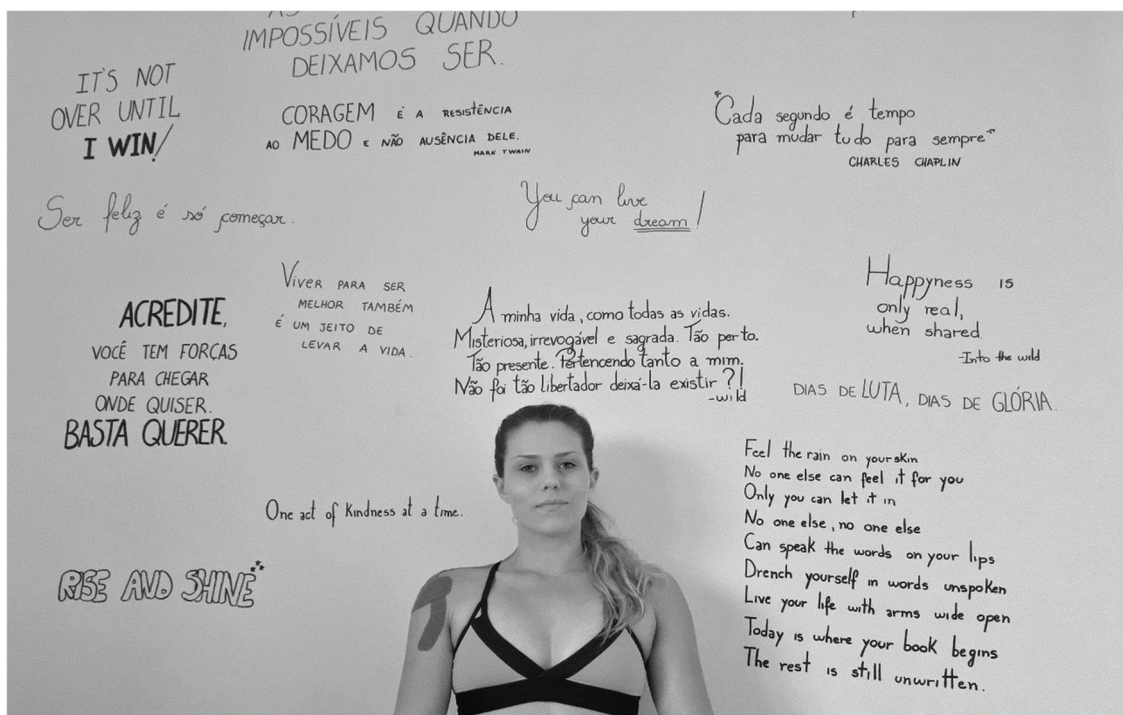 IMPOSSÍVEIS QUANDO
DEIXAMOS SER.
IT'S NOT
OVER UNTIL
I WIN!
CORAGEM É A RESISTÊNCIA
AO MEDO E NÃO AUSÊNCIA DELE.
MARK TWAIN
"Cada segundo é tempo
para mudar tudo para sempre"
CHARLES CHAPLIN
Ser feliz é só começar.
You can live
your dream!
ACREDITE,
VOCÊ TEM FORÇAS
PARA CHEGAR
ONDE QUISER.
BASTA QUERER.
Viver PARA SER
MELHOR TAMBÉM
É UM JEITO DE
LEVAR A VIDA.
A minha vida, como todas as vidas.
Misteriosa, irrevogável e sagrada. Tão perto.
Tão presente. Pertencendo tanto a mim.
Não foi tão libertador deixá-la existir?!
-wild
Happyness is
only real,
when shared
-Into the wild
DIAS DE LUTA, DIAS DE GLÓRIA.
One act of kindness at a time.
RISE AND SHINE
Feel the rain on your skin
No one else can feel it for you
Only you can let it in
No one else, no one else
Can speak the words on your lips
Drench yourself in words unspoken
Live your life with arms wide open
Today is where your book begins
The rest is still unwritten.